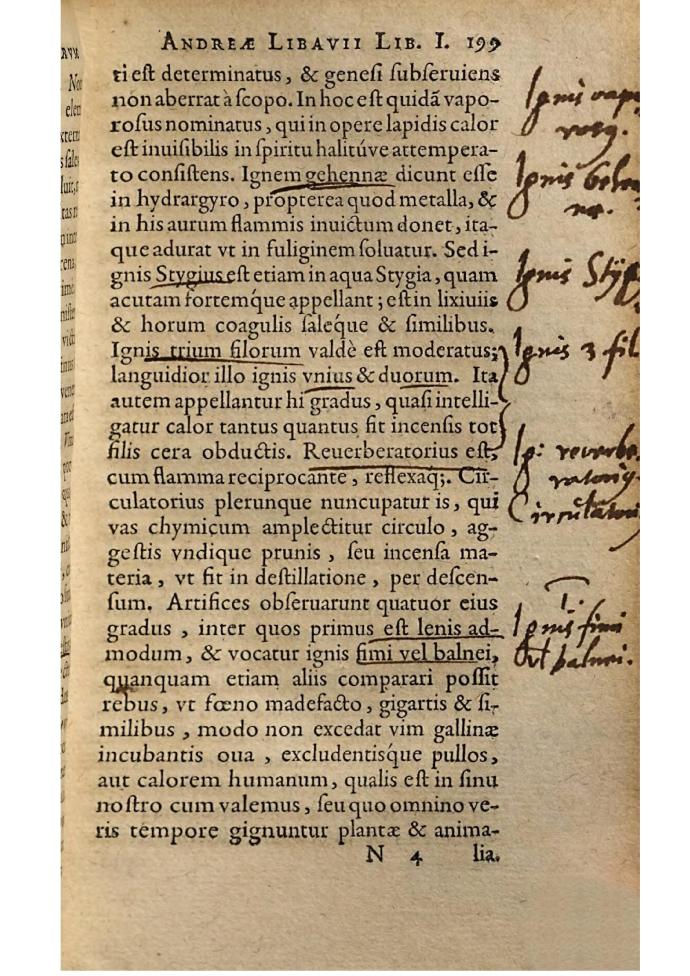 ANDREÆ LIBAVII LIB. I. 199
ti eſt determinatus, & geneſi ſubſeruiens
non aberrat à ſcopo. In hoc eſt quidã vapo-
roſus nominatus, qui in opere lapidis calor
eſt inuiſibilis in ſpiritu halitúve attempera-
to conſiſtens. Ignem gehennæ dicunt eſſe
in hydrargyro, propterea quod metalla, &
in his aurum flammis inuictum donet, ita-
que adurat vt in fuliginem ſoluatur. Sed i-
gnis Stygius eſt etiam in aqua Stygia, quam
acutam fortemq́ue appellant; eſt in lixiuiis
& horum coagulis ſaleq́ue & ſimilibus.
Ignis trium filorum valdè eſt moderatus;
languidior illo ignis vnius & duorum. Ita
autem appellantur hi gradus, quaſi intelli-
gatur calor tantus quantus fit incenſis tot
filis cera obductis. Reuerberatorius eſt,
cum flamma reciprocante, reflexaq́;. Cir-
culatorius plerunque nuncupatur is, qui
vas chymicum amplectitur circulo, ag-
geſtis vndique prunis, ſeu incenſa ma-
teria, vt fit in deſtillatione, per deſcen-
ſum. Artifices obſeruarunt quatuor eius
gradus, inter quos primus eſt lenis ad-
modum, & vocatur ignis fimi vel balnei,
quanquam etiam aliis comparari poſſit
rebus, vt fœno madefacto, gigartis & ſi-
milibus, modo non excedat vim gallinæ
incubantis oua, excludentiſq́ue pullos,
aut calorem humanum, qualis eſt in ſinu
noſtro cum valemus, ſeu quo omnino ve-
ris tempore gignuntur plantæ & anima-
N 4 lia.
Ignis vapo
Ignis
Ignis Styg
Ignis 3 fil
Ig: reverbe
Circulatori
1.
Ignis fimi
vl balnei.